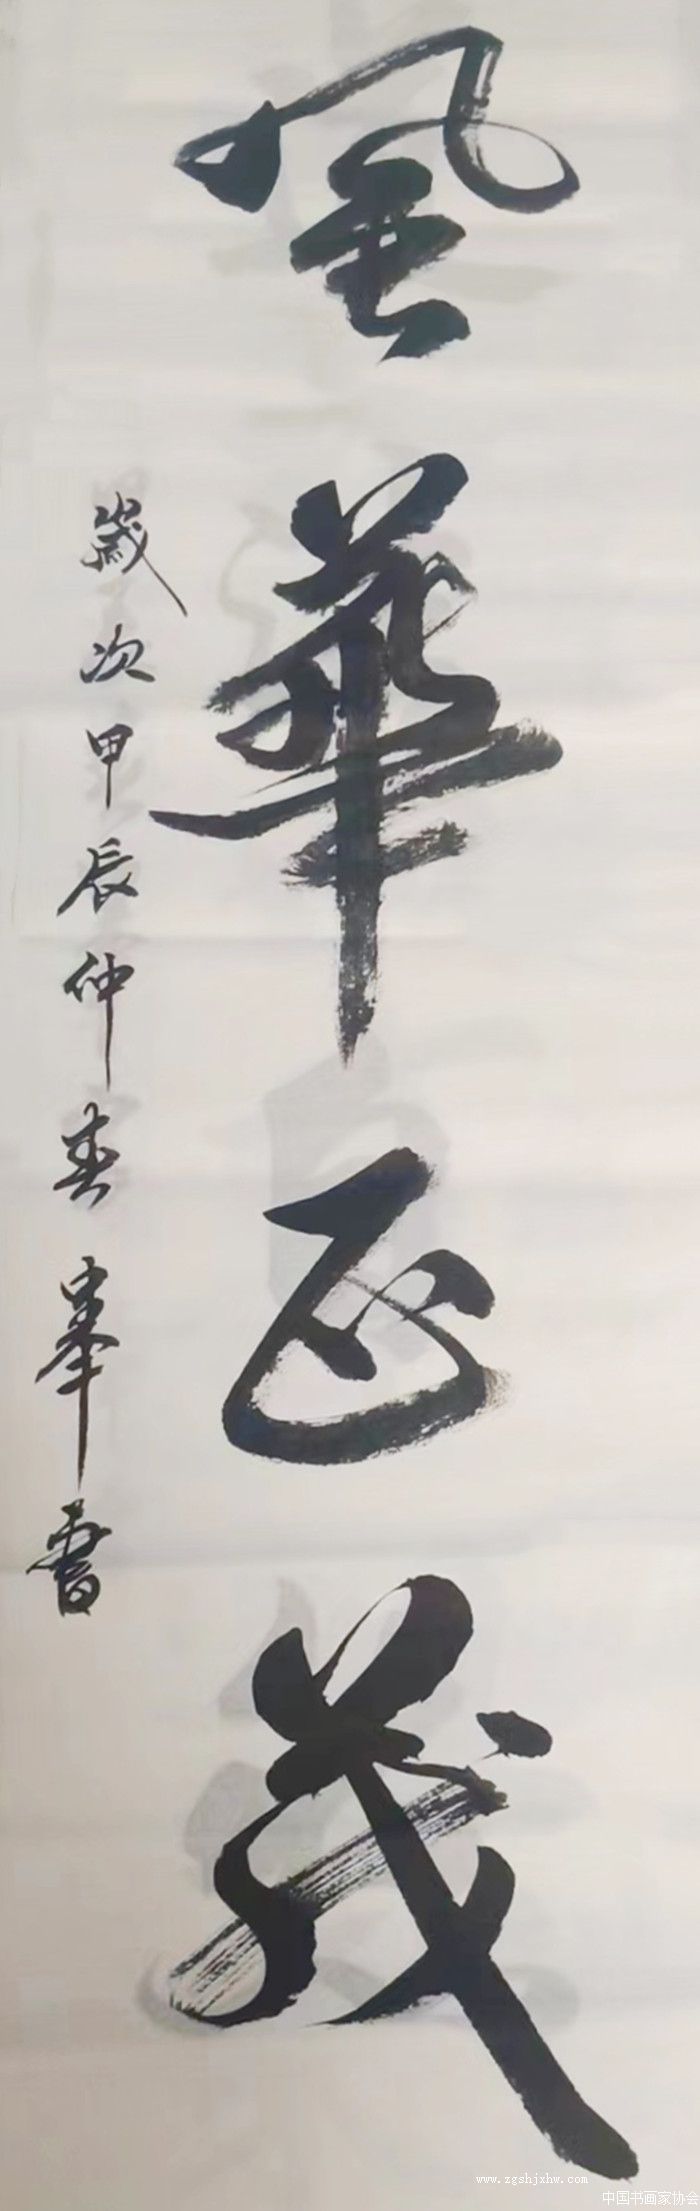 風華正茂
歲次甲辰仲春峯書
www.zgshjxhw.com
中国书画家协会